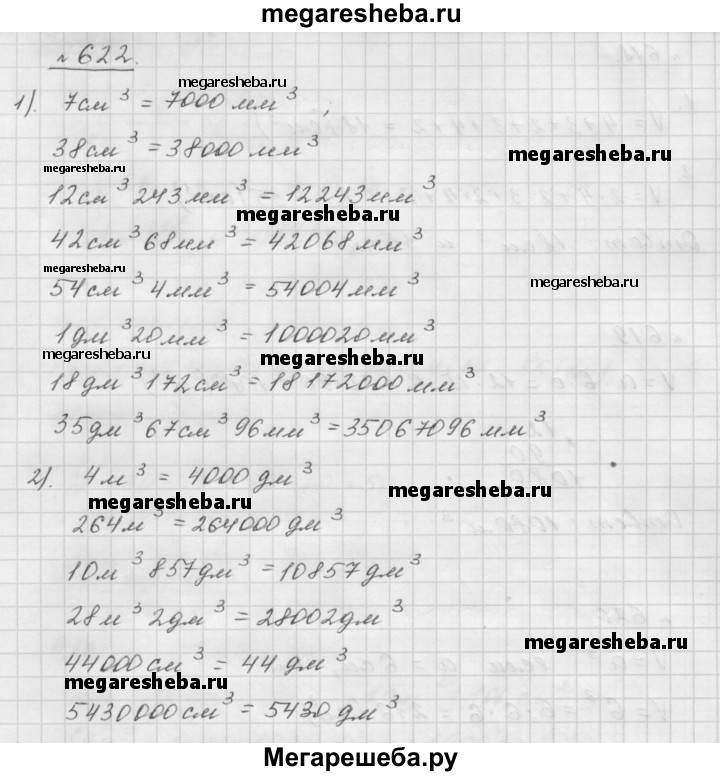 megaresheba.ru
№ 622.
megaresheba.ru
1). 7см³ = 7000 мм³ ,
38см³ = 38000 мм³
megaresheba.ru
megaresheba.ru
12см³ 243мм³ = 12243мм³
megaresheba.ru
42см³ 68мм³ = 42068мм³
megaresheba.ru
54см³ 4мм³ = 54004мм³
megaresheba.ru
1дм³ 20мм³ = 1000020мм³
megaresheba.ru
megaresheba.ru
18дм³ 172см³ = 18172000мм³
35дм³ 67см³ 96мм³ = 35067096мм³
2). 4м³ = 4000 дм³
megaresheba.ru
megaresheba.ru
264м³ = 264000 дм³
10м³ 857дм³ = 10857 дм³
28м³ 2дм³ = 28002дм³
megaresheba.ru
44000см³ = 44 дм³
megaresheba.ru
5430000см³ = 5430 дм³
Мегарешеба.ру